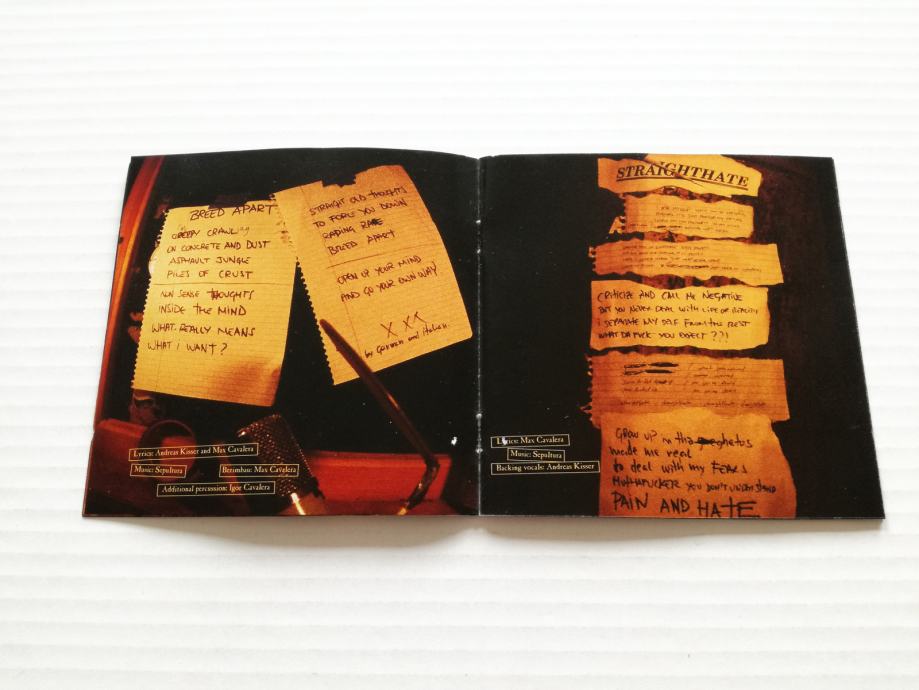 BREED APART
CREEPY CRAWLING
ON CONCRETE AND DUST
ASPHAULT JUNGLE
PILES OF CRUST
NON SENSE THOUGHTS
INSIDE THE MIND
WHAT REALLY MEANS
WHAT I WANT?
STRAIGHT OLD THOUGHTS
TO FORCE YOU DOWN
RADING RAGE
BREED APART
OPEN UP YOUR MIND
AND GO YOUR OWN WAY
XXX
by German and italien.
Lyrics: Andreas Kisser and Max Cavalera
Music: Sepultura
Berimbau: Max Cavalera
Additional percussion: Igor Cavalera
STRAIGHTHATE
CRITICIZE AND CALL ME NEGATIVE
BUT YOU NEVER DEAL WITH LIFE OF REALITY
I SEPARATE MY SELF FROM THE REST
WHAT DA FUCK YOU EXPECT ??!
GROW UP in tha ghetos
made me real
to deal with my FEARS
MUTHAFUCKER YOU DON'T UNDERSTAND
PAIN AND HATE
Lyrics: Max Cavalera
Music: Sepultura
Backing vocals: Andreas Kisser